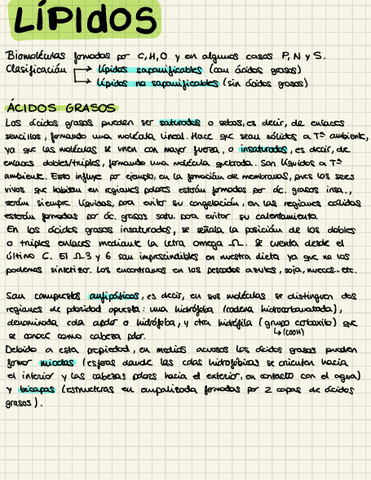 LÍPIDOS
Biomoléculas formadas por C, H, O y en algunos casos P, N y S.
Clasificación → Lípidos saponificables (con ácidos grasos)
→ Lípidos no saponificables (sin ácidos grasos)
ÁCIDOS GRASOS
Los ácidos grasos pueden ser saturados o sebos, es decir, de enlaces
sencillos, formando una molécula lineal. Hace que sean sólidos a Tª ambiente,
ya que las moléculas se unen con mayor fuerza, o insaturados, es decir, de
enlaces dobles/triples, formando una molécula quebrada. Son líquidos a Tª
ambiente. Esto influye por ejemplo, en la formación de membranas, pues los seres
vivos que habitan en regiones polares estarán formados por ác. grasos insa.,
serán siempre líquidas, para evitar su congelación, en las regiones cálidas
estarán formadas por ác. grasos satu. para evitar su calentamiento.
En los ácidos grasos insaturados, se señala la posición de los dobles
o triples enlaces mediante la letra omega Ω. Se cuenta desde el
último C. El Ω3 y 6 son imprescindibles en nuestra dieta ya que no los
podemos sintetizar. Los encontramos en los pescados azules, soja, nueces...etc.
Son compuestos anfipáticos, es decir, en sus moléculas se distinguen dos
regiones de polaridad opuesta: una hidrófoba (cadena hidrocarbonatada),
denominada cola apolar o hidrófoba, y otra hidrófila (grupo carboxilo) que
se conoce como cabeza polar.
↳ (COOH)
Debido a esta propiedad, en medios acuosos los ácidos grasos pueden
formar micelas (esferas donde las colas hidrofóbicas se orientan hacia
el interior y las cabezas polares hacia el exterior, en contacto con el agua)
y bicapas (estructuras en empalizada formadas por 2 capas de ácidos
grasos).